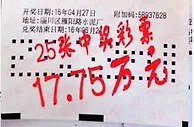 开奖日期:16年04月27日 附加码:58937628
地址:淄川区雁阳路水泥厂
兑奖结束日期:16年06月2
25张中奖彩票
17.75万元